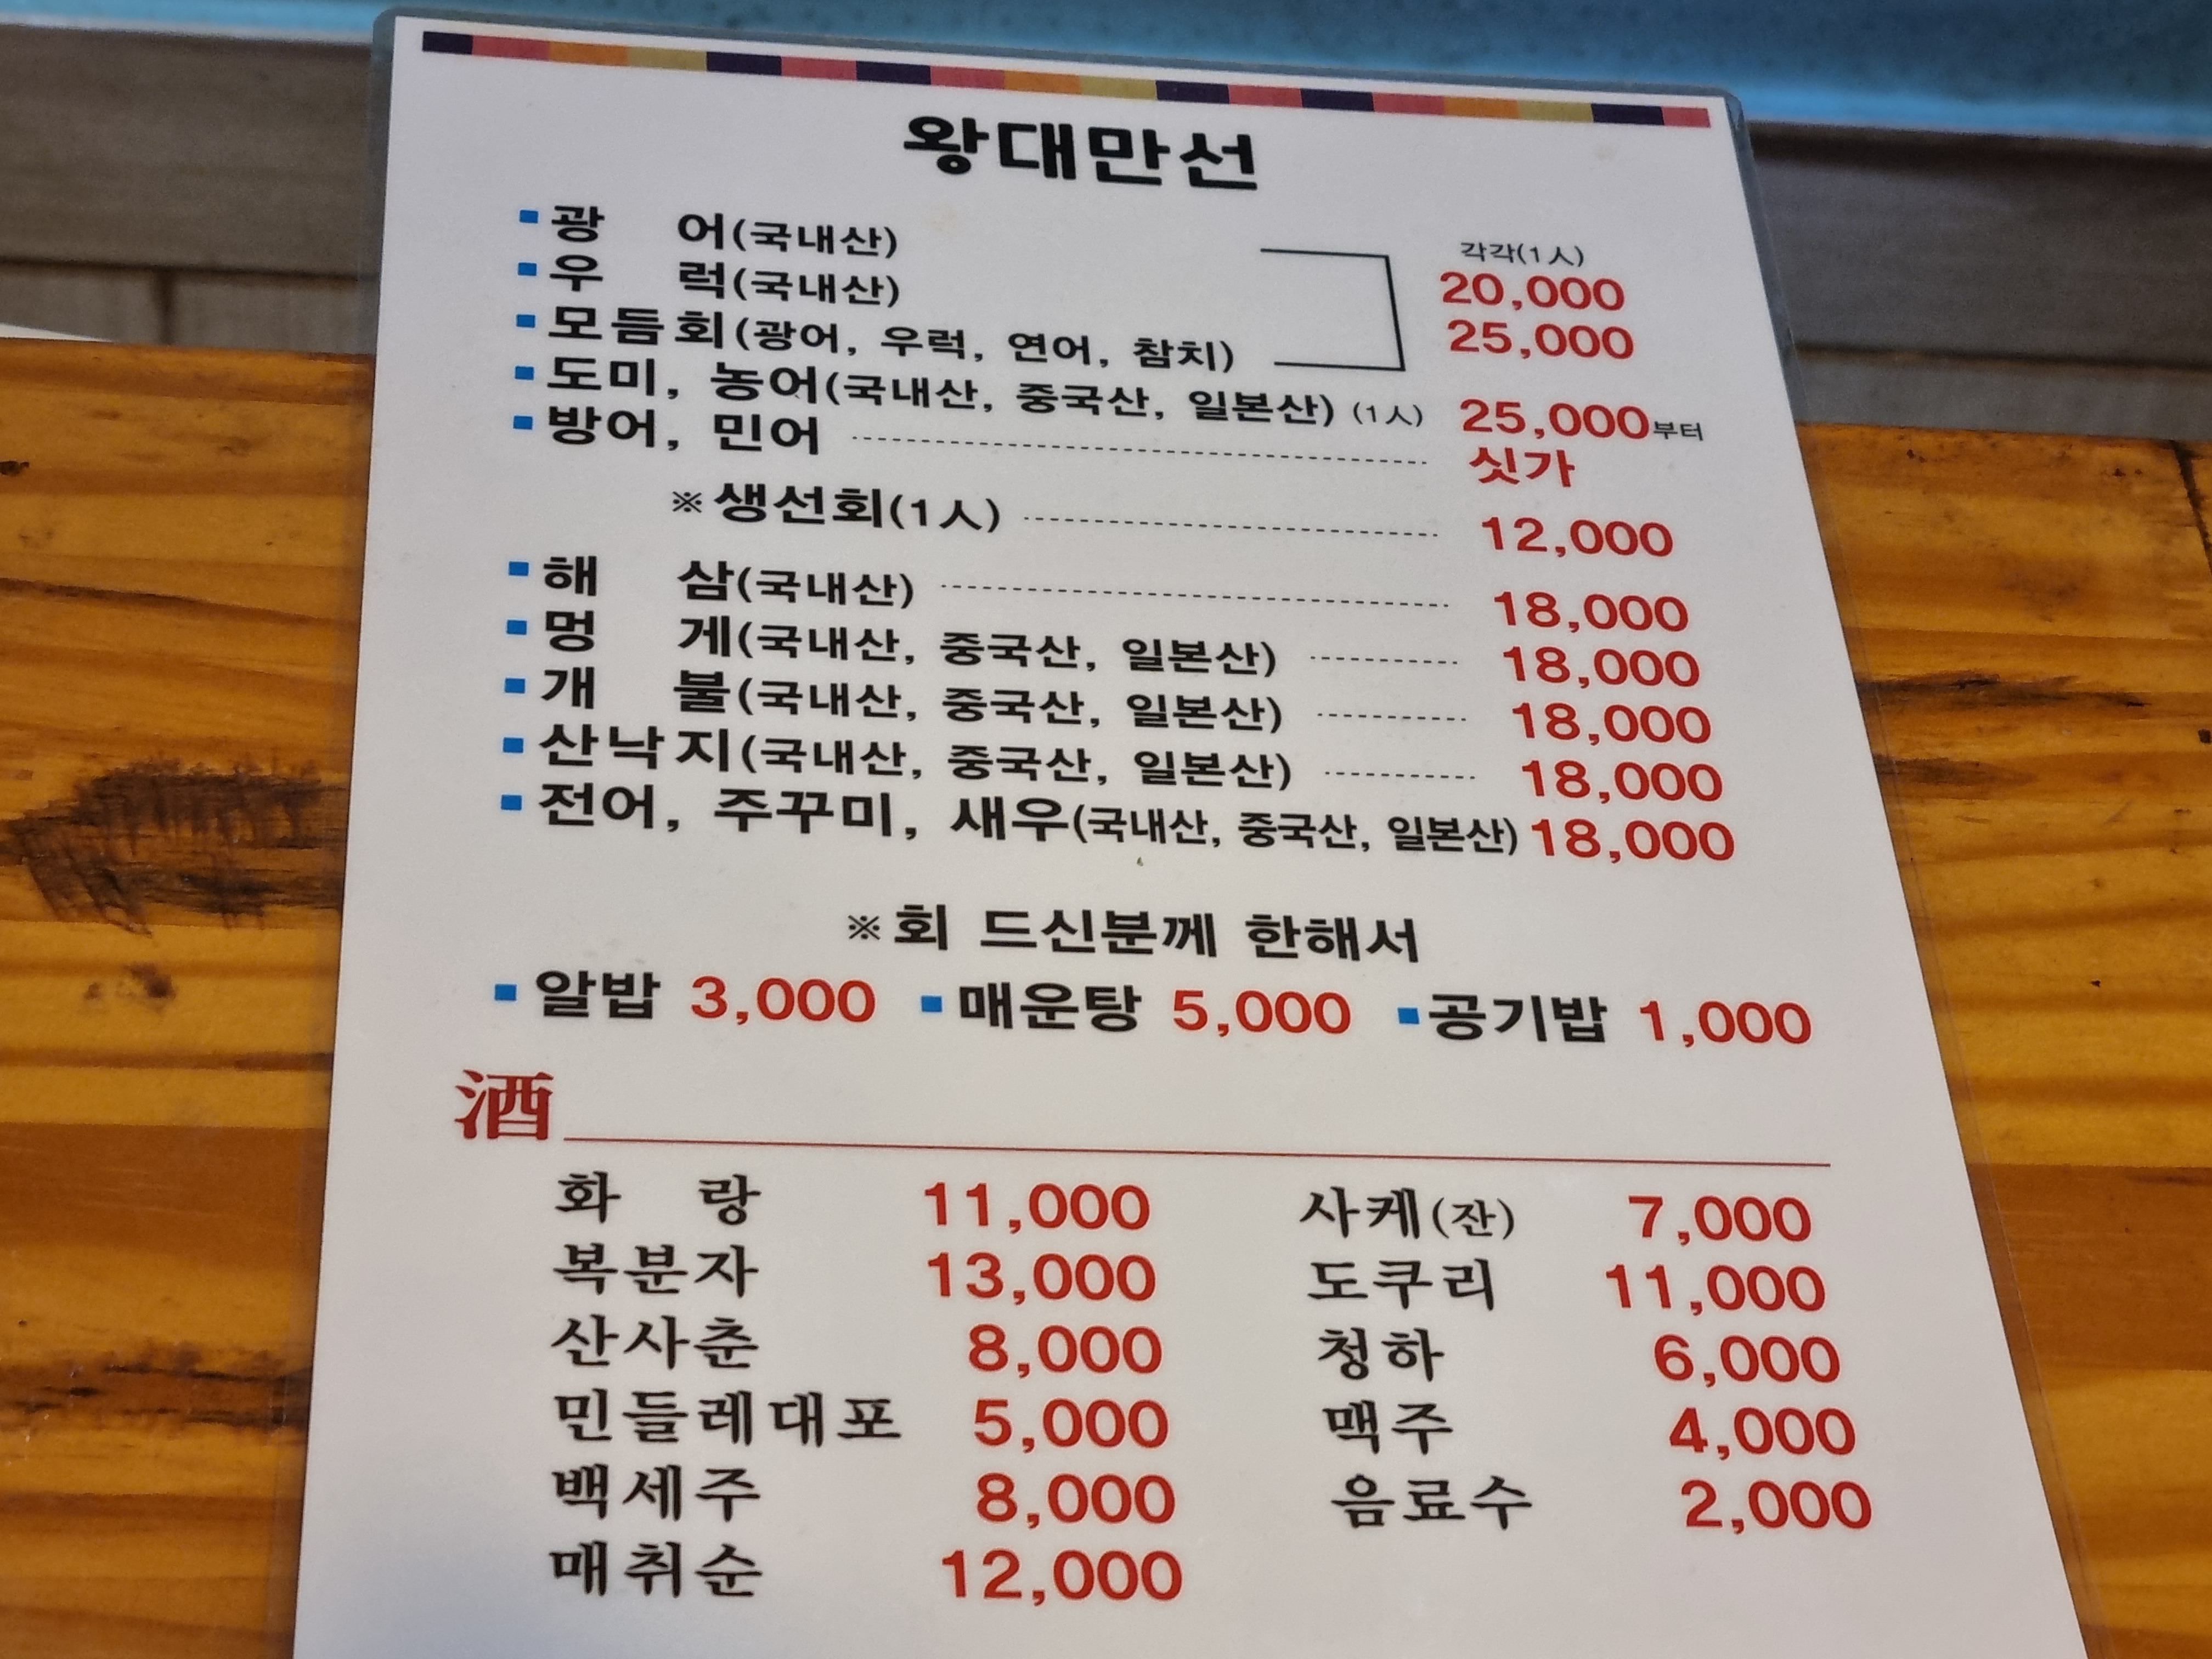 왕대만선
광 어(국내산)
각각(1人)
우 럭(국내산)
20,000
모듬회(광어, 우럭, 연어, 참치)
25,000
도미, 농어(국내산, 중국산, 일본산) (1人) 25,000부터
방어, 민어 싯가
※생선회(1人) 12,000
해 삼(국내산) 18,000
멍 게(국내산, 중국산, 일본산) 18,000
개 불(국내산, 중국산, 일본산) 18,000
산낙지(국내산, 중국산, 일본산) 18,000
전어, 주꾸미, 새우(국내산, 중국산, 일본산) 18,000
※회 드신분께 한해서
알밥 3,000 매운탕 5,000 공기밥 1,000
酒
화 랑 11,000 사케(잔) 7,000
복분자 13,000 도쿠리 11,000
산사춘 8,000 청하 6,000
민들레대포 5,000 맥주 4,000
백세주 8,000 음료수 2,000
매취순 12,000